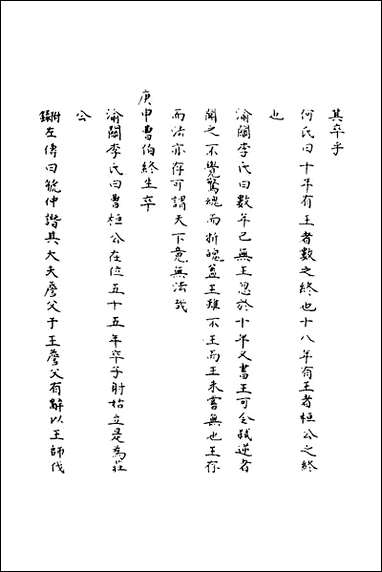 其卒乎
何氏曰十年有王者數之終也十八年有王者桓公之終
也
渝關李氏曰數年已無王忽於十年又書王可令弒逆者
聞之不覺驚魂而折魄蓋王雖不王而王未嘗無也王存
而法亦存可謂天下竟無法哉
庚申曹伯終生卒
渝關李氏曰曹桓公在位五十五年卒子射姑立是為莊
公
附錄左傳曰虢仲譖其大夫詹父于王詹父有辭以王師伐